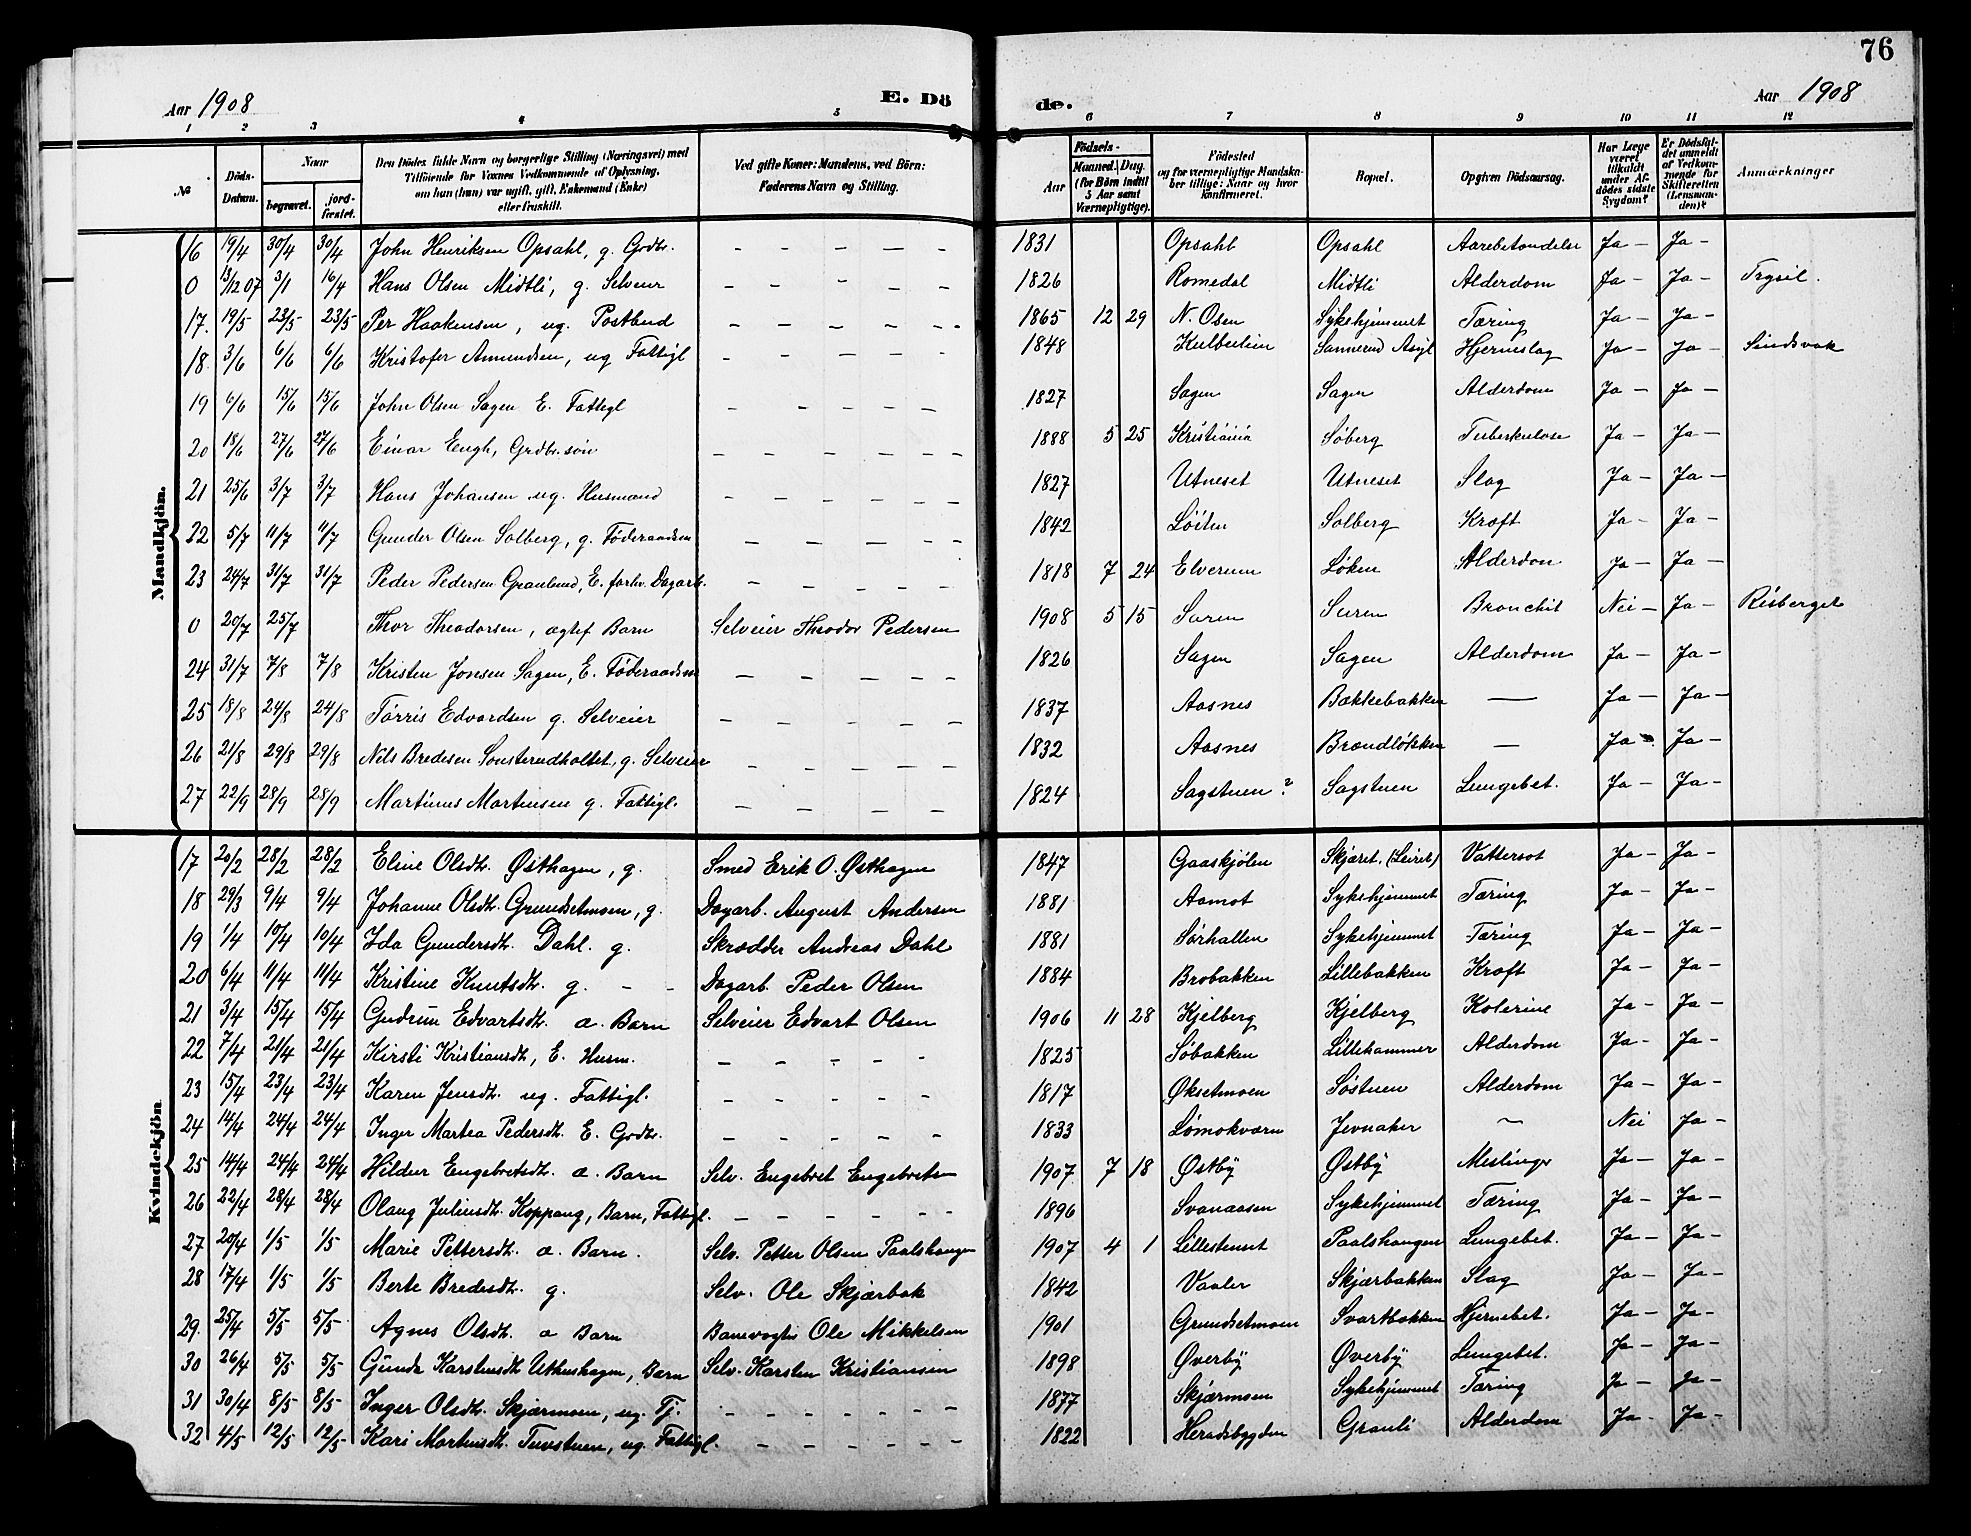 76
Aar 1908 E. Dö de. Aar 1908
1 2 3 4 5 6 7 8 9 10 11 12
№ Döds-Datum. Naar begravet. jord-fæstet. Den Dödes fulde Navn og borgerlige Stilling (Næringsvei) med Tilföiende for Voxnes Vedkommende af Oplysning, om han (hun) var ugift, gift, Enkemand (Enke) eller fraskilt. Ved gifte Koner: Mandens, ved Börn: Faderens Navn og Stilling. Födsels- Aar Maaned. Dag. (for Börn indtil 5 Aar samt Værnepligtige). Födested og for værnepligtige Mandskaber tillige: Naar og hvor konfirmeret. Bopæl. Opgiven Dödsaarsag. Har Læge været tilkaldt under Afdödes sidste Sygdom? Er Dödsfaldet anmeldt af Vedkommende for Skifteretten (Lensmanden)? Anmærkninger
Mandkjön.
16 19/4 30/4 30/4 John Henriksen Opsahl, g. Grdbr. – – – – – 1831 Opsahl Opsahl Aarebetændelse Ja – Ja –
0 13/12 07 3/1 16/4 Hans Olsen Midtli, g. Selveier – – – – – 1826 Romedal Midtli Alderdom Ja – Ja – Trysil.
17. 19/5 23/5 23/5 Per Haakensen, ug. Postbud – – – – – 1865 12 29 N. Osen Sykehjemmet Tæring Ja – Ja –
18 3/6 6/6 6/6 Kristofer Amundsen, ug Fattigl – – – – – 1848 Kulbulien Sannerud Asyl Hjerneslag Ja – Ja – Sindsvak
19 6/6 15/6 15/6 John Olsen Sagen E. Fattigl – – – – – 1827 Sagen Sagen Alderdom Ja – Ja –
20 18/6 27/6 27/6 Einar Engh, Grdbr. søn – – – – – 1888 5 25 Kristiania Søberg Tuberkulose Ja – Ja –
21 25/6 3/7 3/7 Hans Johansen ug. Husmand – – – – – 1827 Utneset Utneset Slag Ja – Ja –
22 5/7 11/7 11/7 Gunder Olsen Solberg, g. Føderaadsm – – – – – 1842 Løiten Solberg Kræft Ja – Ja –
23 24/7 31/7 31/7 Peder Pedersen Granlund, E. forhv. Dagarb. – – – – – 1818 7 24 Elverum Løken Alderdom Ja – Ja –
0 20/7 25/7 Thor Theodorsen, ægtef Barn Selveier Theodor Pedersen 1908 5 15 Suren Suren Bronchit Nei – Ja – Risberget
24 31/7 7/8 7/8 Kristen Jonsen Sagen, E. Føderaadsm – – – – – 1826 Sagen Sagen Alderdom Ja – Ja –
25 18/8 24/8 24/8 Tørris Edvardsen g. Selveier – – – – – 1837 Aasnes Bækkebakken — Ja – Ja –
26 21/8 29/8 29/8 Nils Bredesen Sønsterudholtet, g. Selveier – – – – – 1832 Aasnes Brændløkken — Ja – Ja –
27 22/9 28/9 28/9 Martinus Martinsen g. Fattigl. – – – – – 1824 Sagstuen? Sagstuen Lungebet. Ja – Ja –
Kvindekjön
17 20/2 28/2 28/2 Eline Olsdtr. Østhagen, g. Smed Erik O. Østhagen 1847 Gaaskjølen Skjæret. (Leiret) Vattersot Ja – Ja –
18 29/3 9/4 9/4 Johanne Olsdtr. Grundsetmoen, g. Dagarb. August Andersen 1881 Aamot Sykehjemmet Tæring Ja – Ja –
19 1/4 10/4 10/4 Ida Gundersdtr. Dahl. g. Skrædder Andreas Dahl 1881 Sørhallen Sykehjemmet Tæring Ja – Ja –
20 6/4 11/4 11/4 Kristine Knutsdtr. g. – – Dagarb. Peder Olsen 1884 Brobakken Lillebakken Kræft Ja – Ja –
21 3/4 15/4 15/4 Gudrun Edvartsdtr. æ. Barn Selveier Edvart Olsen 1906 11 28 Kjelberg Kjelberg Kolerine Ja – Ja –
22 7/4 21/4 21/4 Kirsti Kristiansdtr, E. Husm. – – – – – 1825 Søbakken Lillehammer Alderdom Ja – Ja –
23 15/4 23/4 23/4 Karen Jensdtr. ug. Fattigl. – – – – – – 1817 Øksetmoen Søstuen Alderdom Ja – Ja –
24 14/4 24/4 24/4 Inger Martea Pedersdtr. E. Grdbr. – – – – – – 1833 Lømokværn Jevnaker ~ Nei Ja –
25 14/4 24/4 24/4 Hildur Engebretsdtr. æ. Barn Selv. Engebret Engebretsen 1907 7 18 Østby Østby Meslinger Ja – Ja –
26 22/4 28/4 28/4 Olaug Juliusdtr. Koppang, Barn, Fattigl. – – – – – – 1896 Svanaasen Sykehjemmet Tæring Ja – Ja –
27 20/4 1/5 1/5 Marie Pettersdtr. æ. Barn. Selv. Petter Olsen Paalshaugen 1907 4 1 Lillestenset Paalshaugen Lungebet. Ja – Ja –
28 17/4 1/5 1/5 Berte Bredesdtr. g. Selv. Ole Skjærbak 1842 Vaaler Skjærbakken Slag Ja – Ja –
29. 25/4 5/5 5/5 Agnes Olsdtr. æ Barn Banevogter Ole Mikkelsen 1901 Grundsetmoen Svartbækken Hjernebet. Ja – Ja –
30 26/4 5/5 5/5 Gunda Karstensdtr Uthushagen, Barn Selv. Karsten Kristiansen 1898 Øverby Øverby Lungebet. Ja – Ja –
31 30/4 8/5 8/5 Inger Olsdtr. Skjærmoen, ug. Tj. – – – – – – 1877 Skjærmoen Sykehjemmet Tæring Ja – Ja –
32 4/5 12/5 12/5 Kari Mortensdtr. Tuvstuen, ug. Fattigl. – – – – – 1822 Heradsbygden Granli Alderdom Ja – Ja –